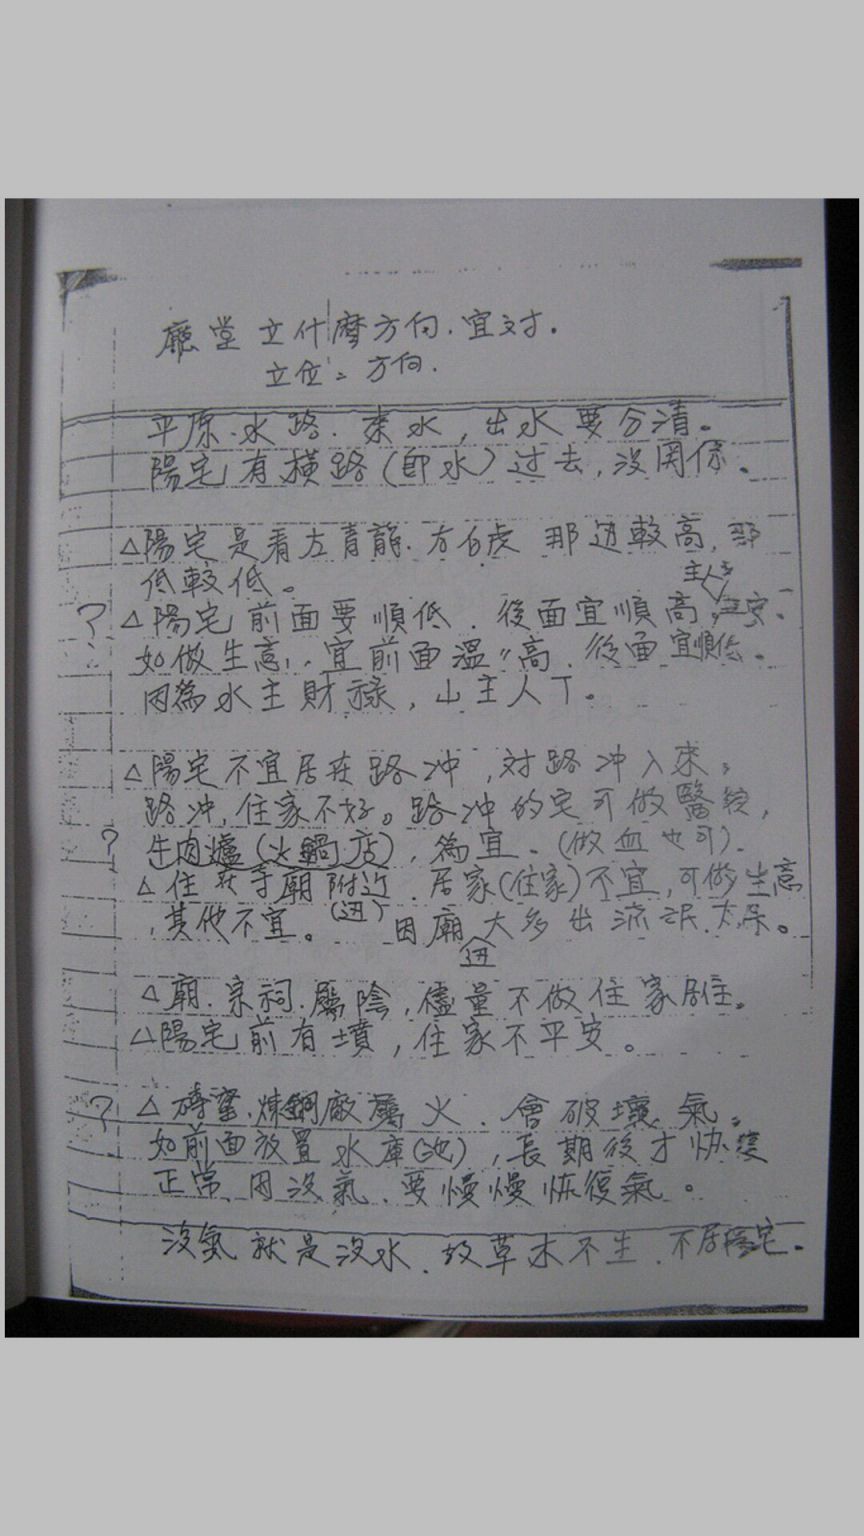 廳堂立什麼方向.宜对.
立位=方向.
平原.水路.來水,出水要分清。
陽宅有横路(即水)过去,没関係。
△陽宅是看左青龍.右白虎 那边較高,那
低較低。
主人
? △陽宅前面要順低.後面宜順高,
如做生意,宜前面温〃高.後面宜順低。
因為水主財祿,山主人丁。
△陽宅不宜居在路冲,対路冲入來。
路冲,住家不好。路冲的宅可做醫院,
? 牛肉爐(火鍋店),為宜。(做血也可).
△住在寺廟附近.居家(住家)不宜,可做生意
,其他不宜。(边) 因廟大多出流氓.太保。
边
△廟.宗祠.屬陰,儘量不做住家居住。
△陽宅前有墳,住家不平安。
? △磚窰.煉鋼廠屬火.會破壞氣。
如前面放置水庫(池),長期後才恢復
正常.因没氣.要慢慢恢復氣。
没氣就是没水.故草木不生.不居陽宅。